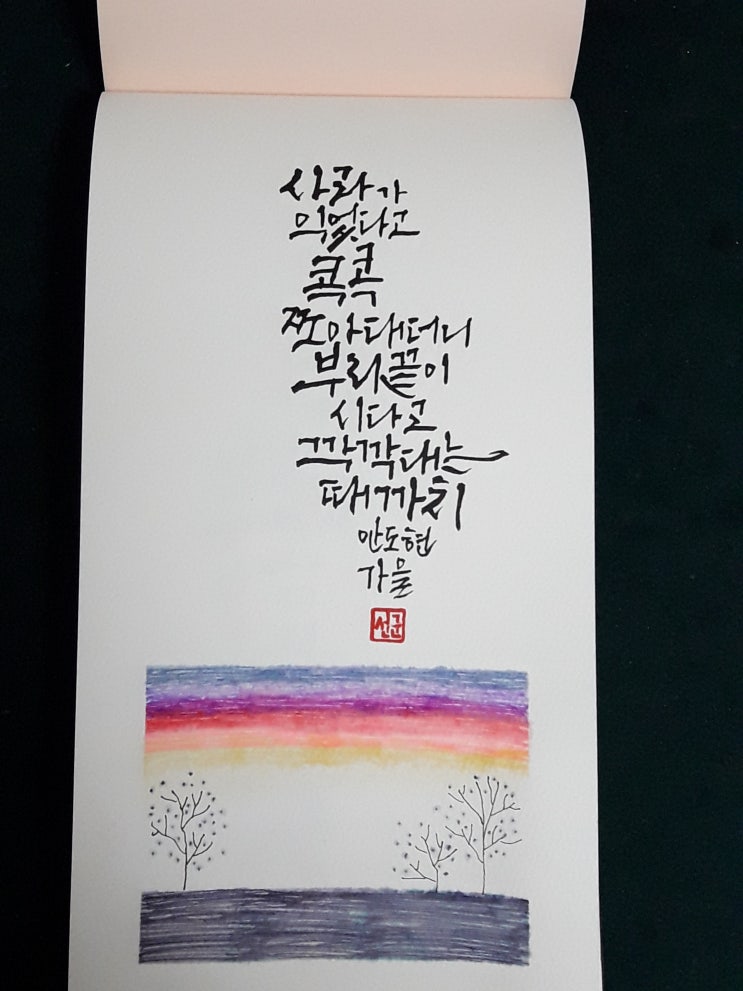 사과가
익었다고
콕콕
쪼아대더니
부리끝이
시다고
깍깍대는
때까치
안도현
가을